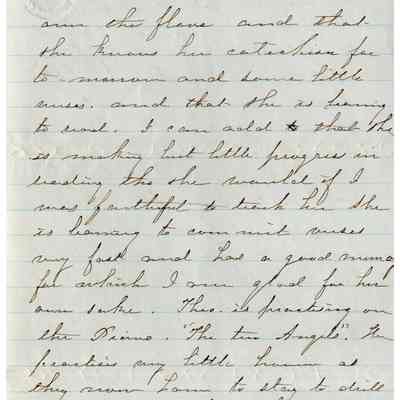 and that
she knows her catechism for
to-morrow and some little
verses. and that she is learning
to read. I can add to that she
is making but little progress in
reading tho she would if I
was faithful to teach her she
is learning to commit verses
very fast and has a good memory
for which I am glad for her
own sake. Theo. is practising on
the Piano. "The two Angels". He
practices very little home as
they now have to stay to drill